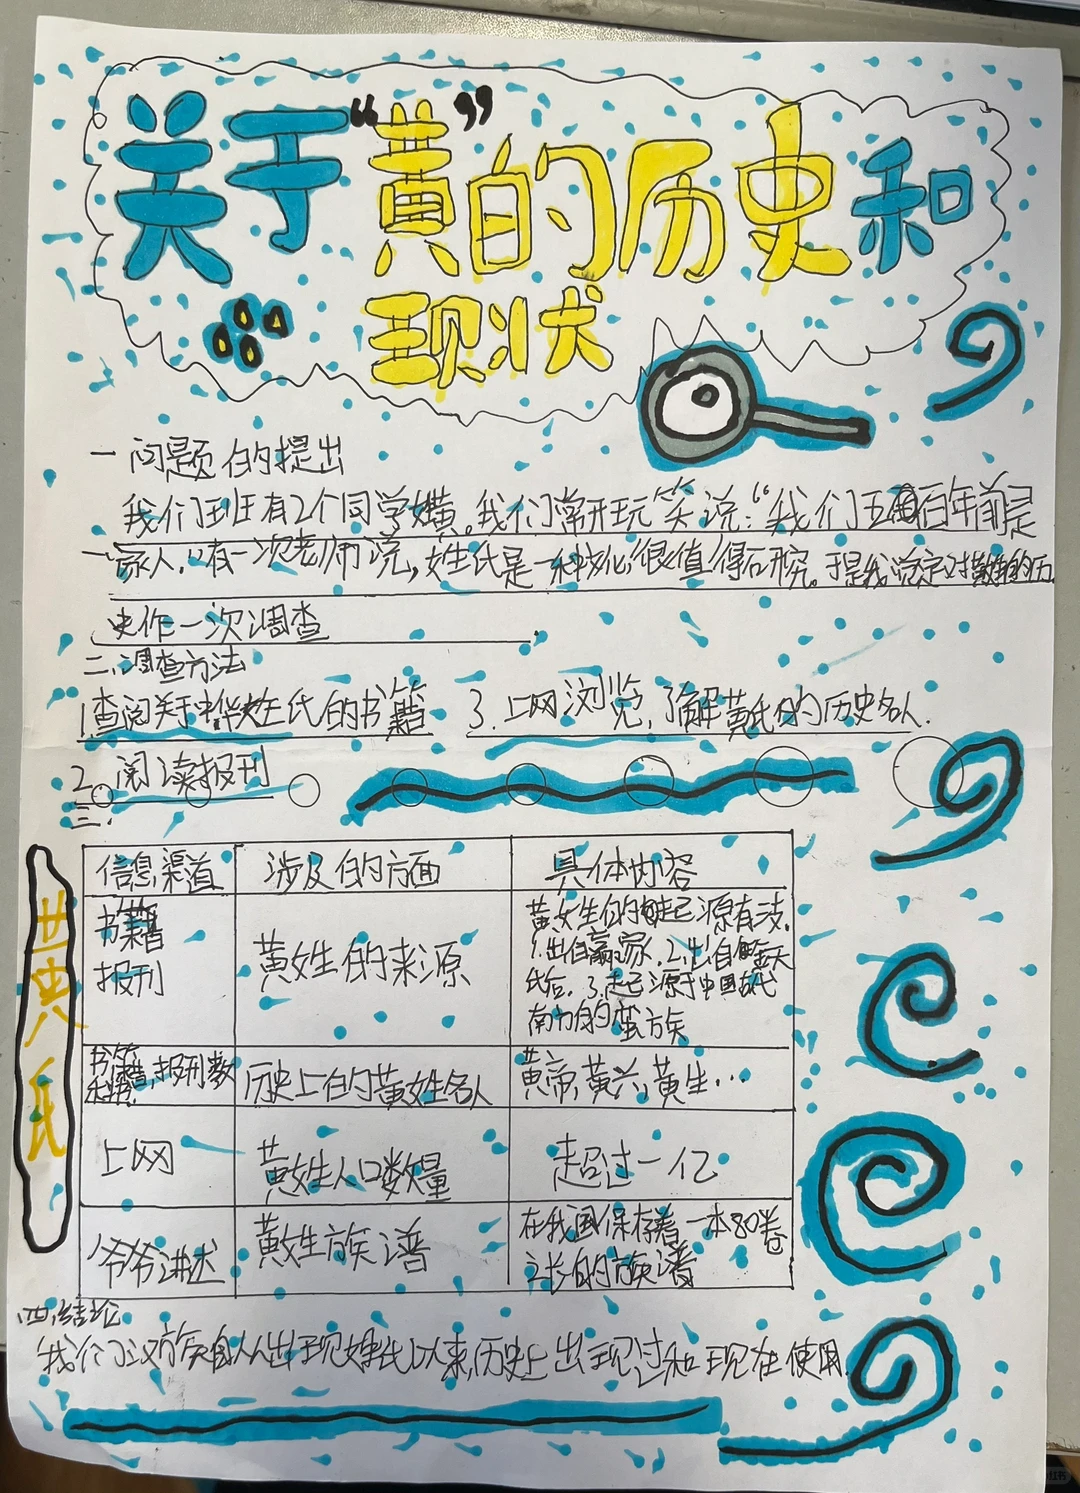 关于“黄”的历史和
现状
一 问题的提出
我们班有2个同学姓黄。我们常开玩笑说:“我们五百年前是
一家人,”有一次老师说,姓氏是一种文化,很值得研究。于是我决定对黄姓的历
史作一次调查
二、调查方法
1.查阅关于中华姓氏的书籍 3.上网浏览,了解黄氏的历史名人.
2.阅读报刊
三.
黄氏
信息渠道 涉及的方面 具体内容
书籍
报刊
黄姓的来源
黄姓的起源有三
1.出自嬴家 2.出自金天
氏后. 3.起源于中国古代
南方的蛮族
书籍,报刊教
科书.
历史上的黄姓名人
黄帝,黄六,黄生…
上网 黄姓人口数量 超过一亿
爷爷讲述 黄姓族谱
在我国保存着一本80卷
之长的族谱
四、结论
我们汉族自从出现姓氏以来,历史上出现过和现在使用.